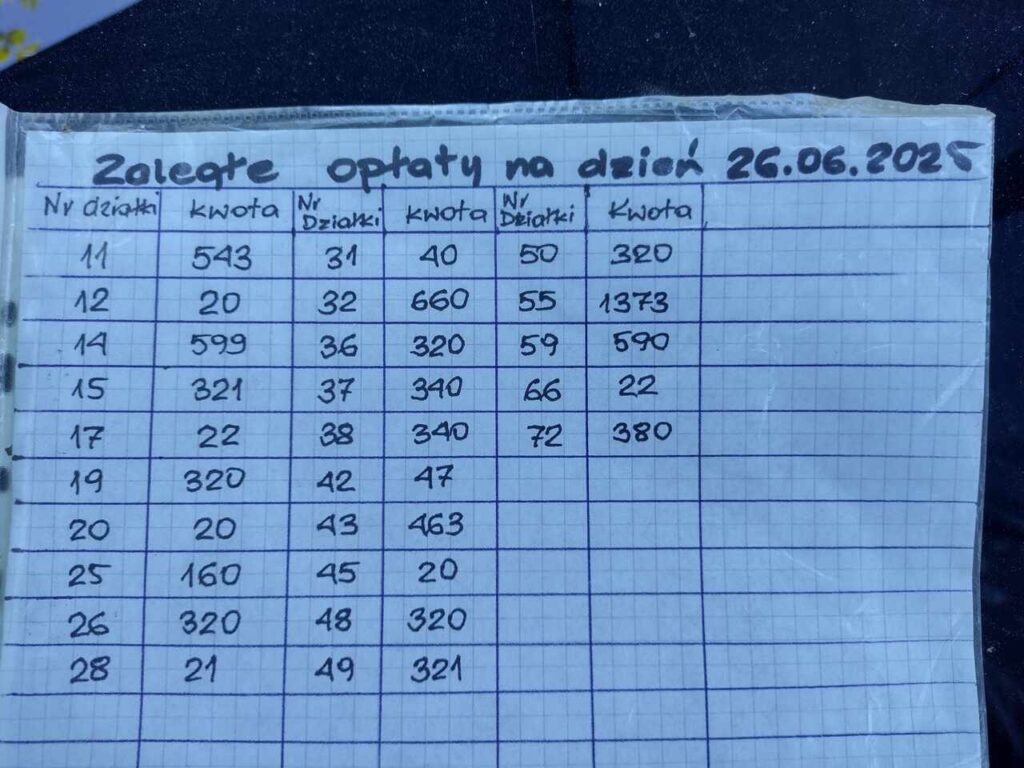 Zaległe opłaty na dzień 26.06.2025
Nr działki kwota Nr Działki kwota Nr Działki Kwota
11 543 31 40 50 320
12 20 32 660 55 1373
14 599 36 320 59 590
15 321 37 340 66 22
17 22 38 340 72 380
19 320 42 47
20 20 43 463
25 160 45 20
26 320 48 320
28 21 49 321